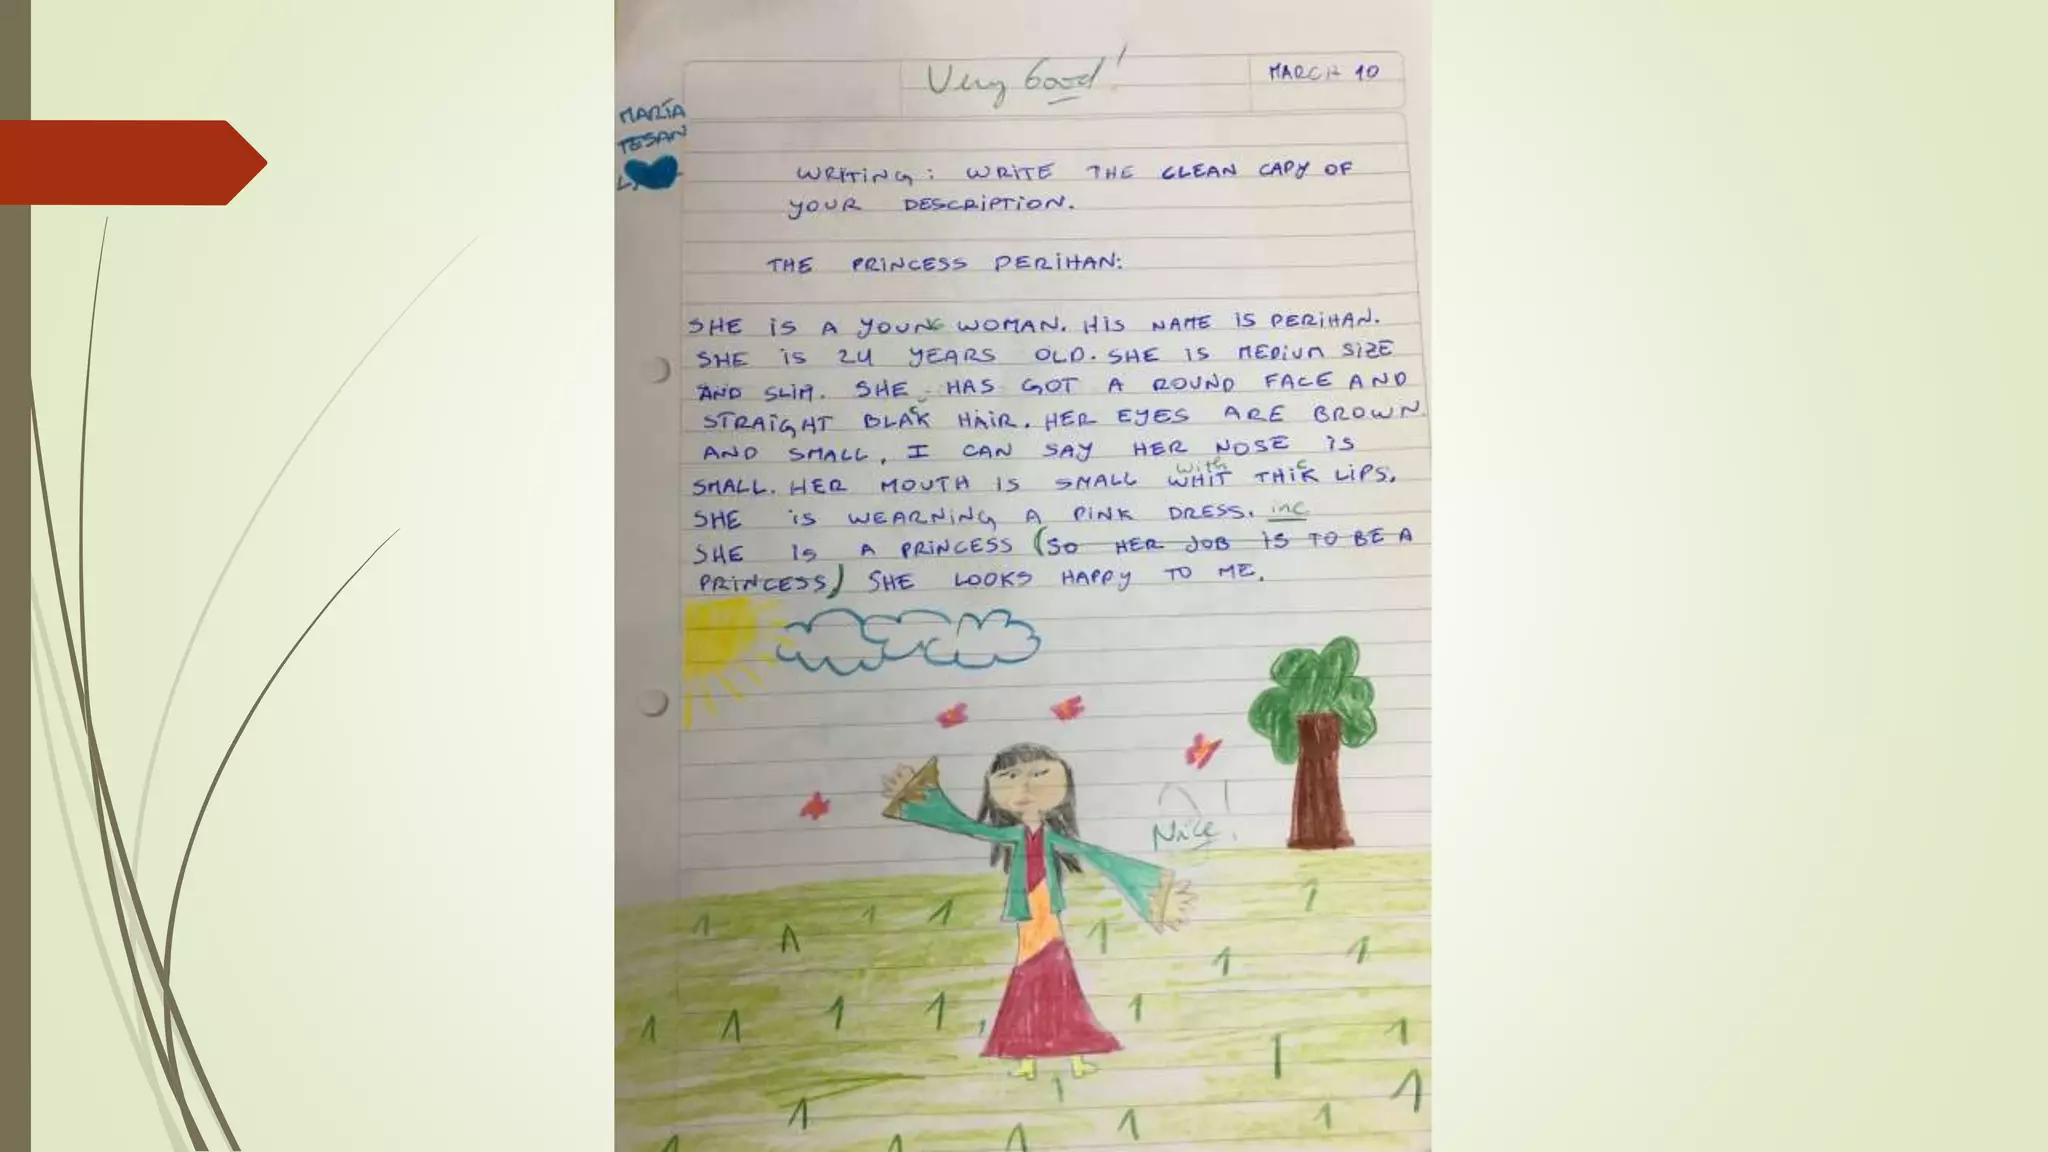 Very Good!
MARCH 10
MARÍA
TESAN
WRITING: WRITE THE CLEAN CAPY OF
YOUR DESCRIPTION.
THE PRINCESS PERIHAN:
SHE IS A YOUNG WOMAN. HIS NAME IS PERIHAN.
SHE IS 24 YEARS OLD. SHE IS MEDIUM SIZE
AND SLIM. SHE HAS GOT A ROUND FACE AND
c
STRAIGHT BLAK HAIR. HER EYES ARE BROWN
AND SMALL, I CAN SAY HER NOSE IS
with c
SMALL. HER MOUTH IS SMALL WHIT THIK LIPS.
SHE IS WEARNING A PINK DRESS. inc
SHE IS A PRINCESS (SO HER JOB IS TO BE A
PRINCESS) SHE LOOKS HAPPY TO ME.
Nice!